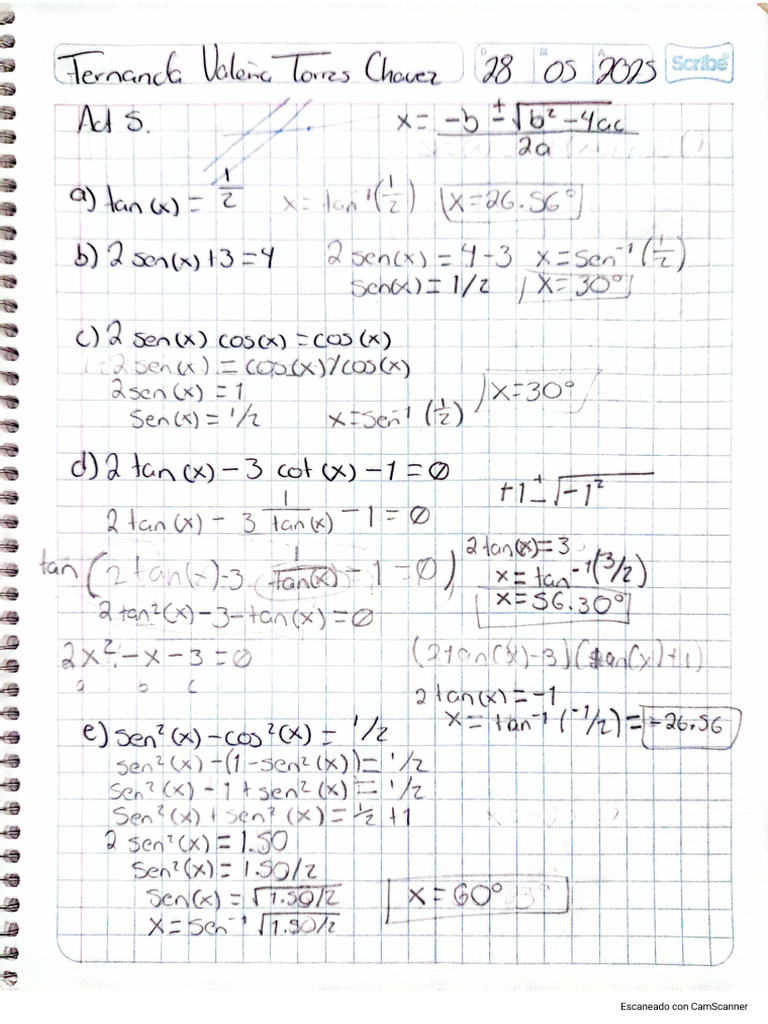 Fernanda Valeria Torres Chavez
D M A
28 05 2025
Scribe
Act 5.
x = -b ± √b² - 4ac
2a
a) tan(x) = 1/2 x = tan⁻¹(1/2) x = 26.56°
b) 2 sen(x) + 3 = 4 2 sen(x) = 4 - 3 x = sen⁻¹(1/2)
sen(x) = 1/2 x = 30°
c) 2 sen(x) cos(x) = cos(x)
2 sen(x) = cos(x)/cos(x)
2 sen(x) = 1
sen(x) = 1/2 x = sen⁻¹(1/2) x = 30°
d) 2 tan(x) - 3 cot(x) - 1 = 0
+1 ± √-1²
2 tan(x) - 3 1/tan(x) - 1 = 0
tan(2 tan(x) - 3 1/tan(x) - 1 = 0)
2 tan²(x) - 3 - tan(x) = 0
2x² - x - 3 = 0
a b c
2 tan(x) = 3
x = tan⁻¹(3/2)
x = 56.30°
(2 tan(x) - 3)(tan(x) + 1)
2 tan(x) = -1
x = tan⁻¹(-1/2) = -26.56
e) sen²(x) - cos²(x) = 1/2
sen²(x) - (1 - sen²(x)) = 1/2
sen²(x) - 1 + sen²(x) = 1/2
sen²(x) + sen²(x) = 1/2 + 1
2 sen²(x) = 1.50
sen²(x) = 1.50/2
sen(x) = √1.50/2
x = sen⁻¹ √1.50/2
x = 60°
Escaneado con CamScanner